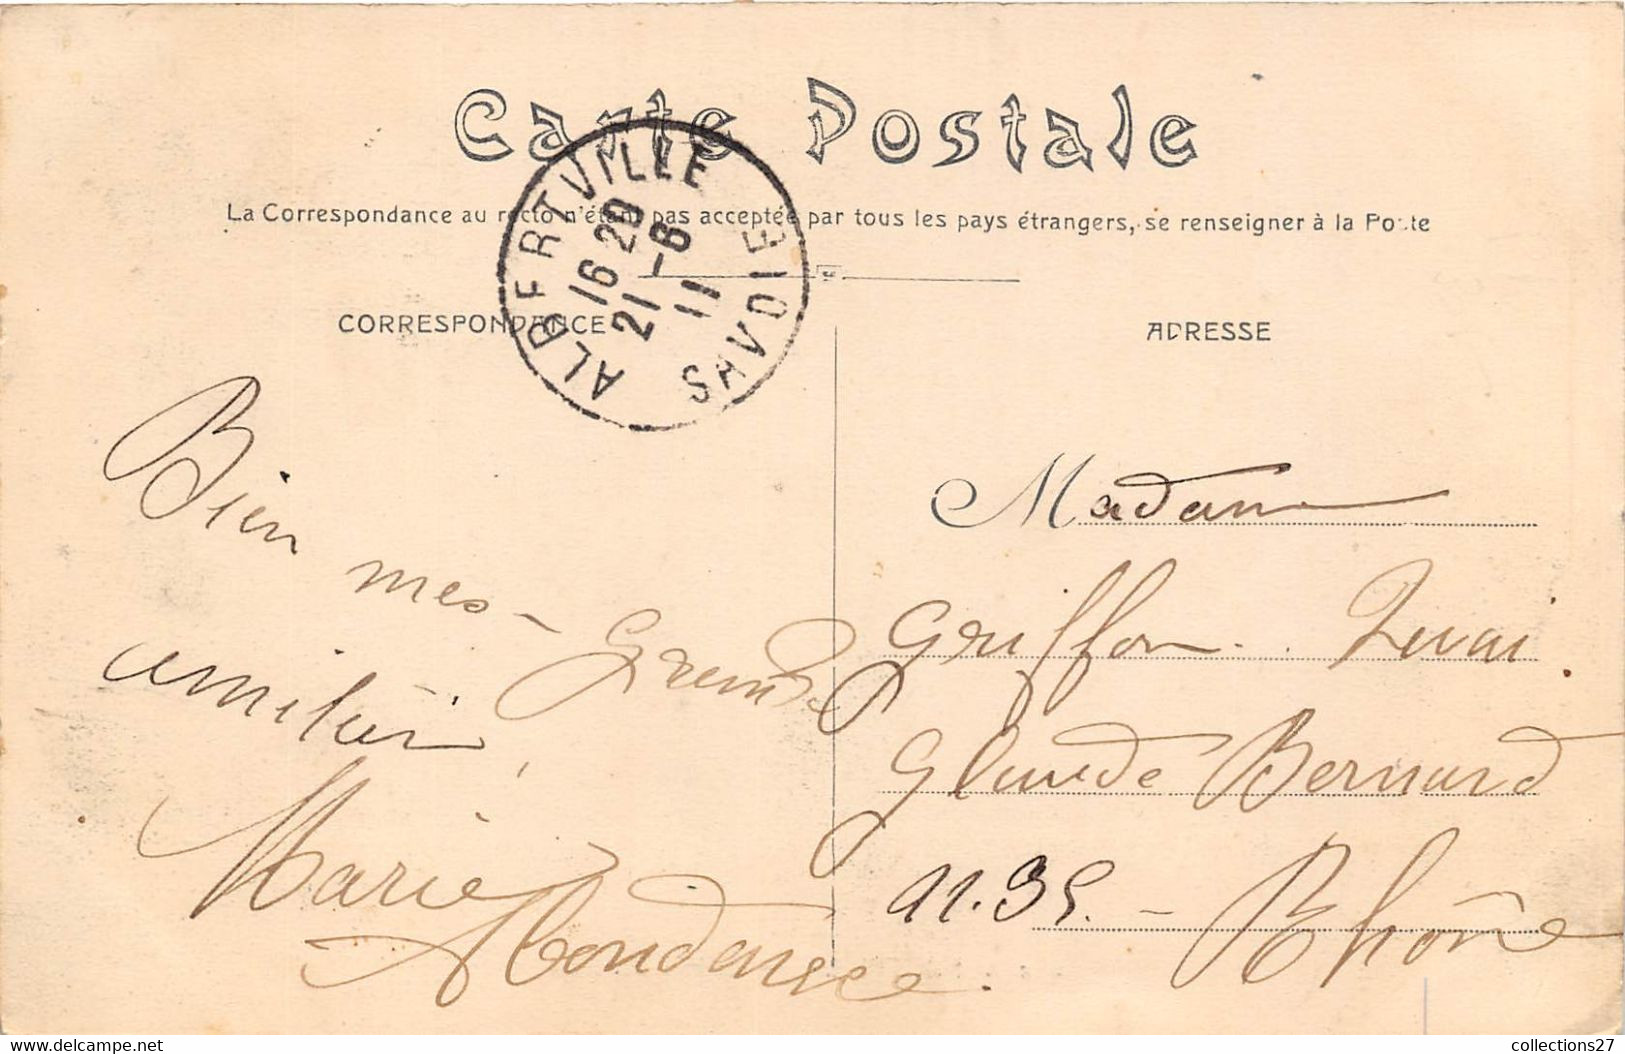 Carte Postale
La Correspondance au recto n'étant pas acceptée par tous les pays étrangers, se renseigner à la Poste
ALBERTVILLE
16 20
21 - 6
11
SAVOIE
CORRESPONDANCE
ADRESSE
Bien mes
amitiés
Marie
Abondance.
Madame
Griffon.
Claude Bernard
Rhône
collections27